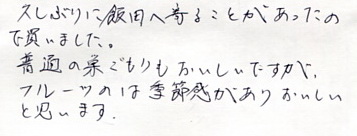 久しぶりに飯田へ寄ることがあったの
で買いました。
普通の巣ごもりもおいしいですが、
フルーツのは季節感がありおいしい
と思います.